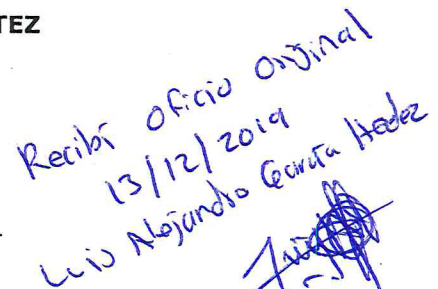 TEZ
Recibí oficio original
13/12/2019
Luis Alejandro García Hedez